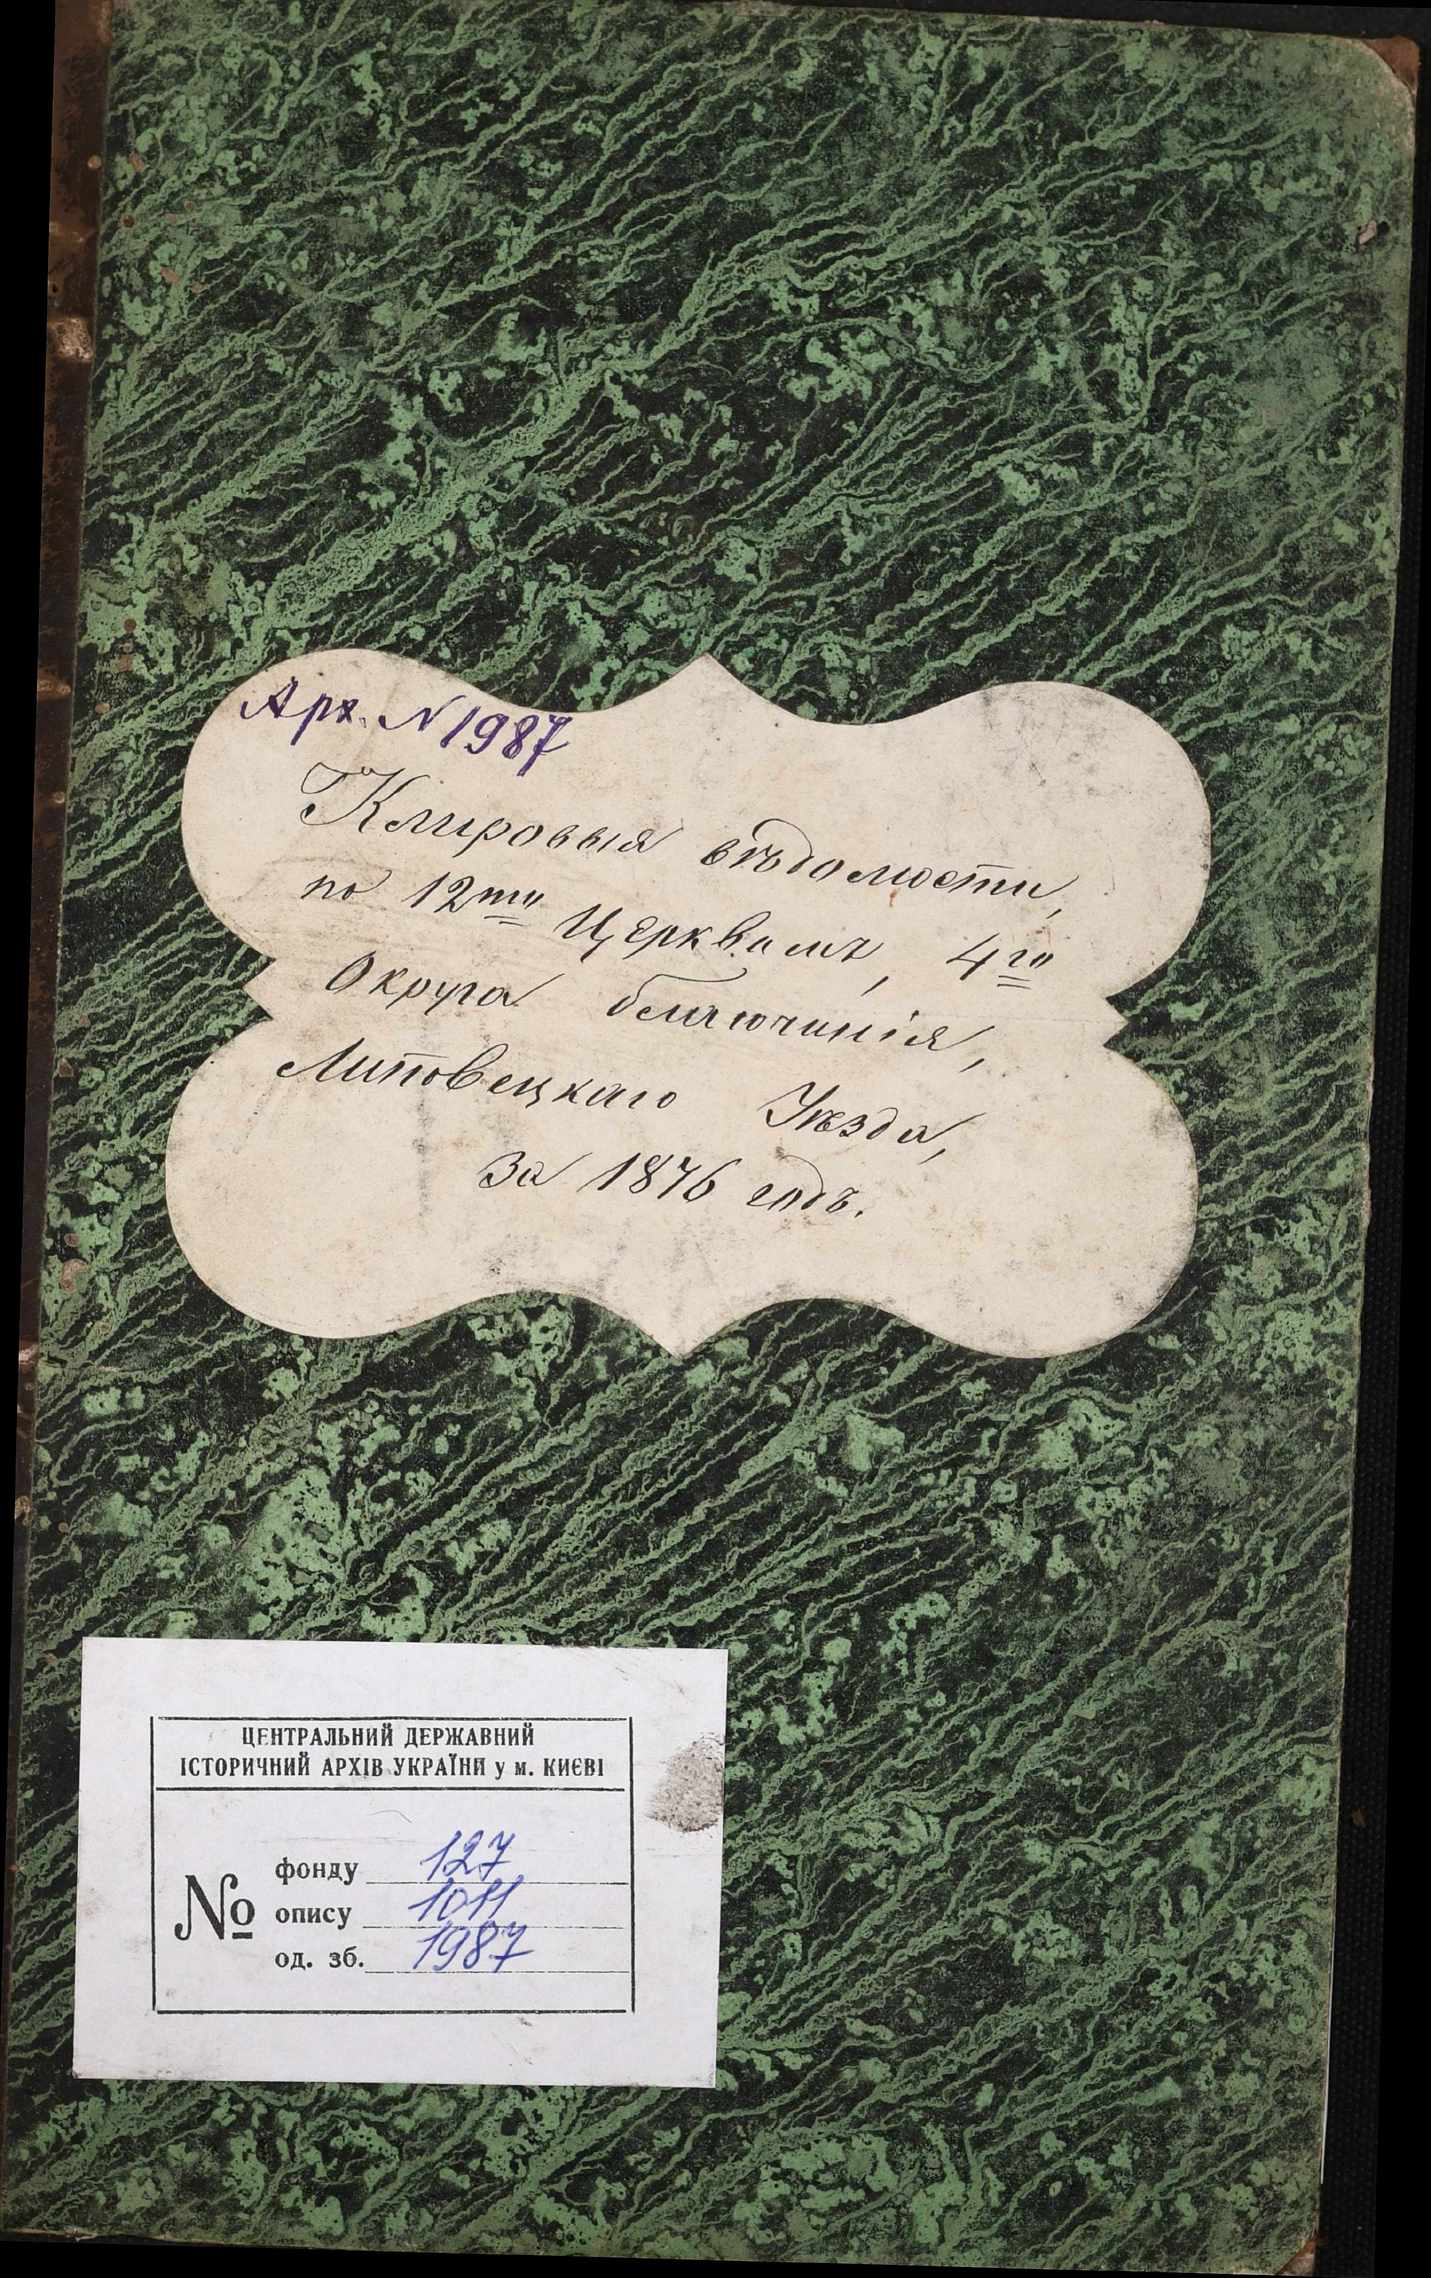 Арх. N 1987
Клировыя вѣдомости,
по 12ти Церквамъ, 4го
Округа благочинія,
Липовецкаго Уѣзда,
За 1876 годъ.
ЦЕНТРАЛЬНИЙ ДЕРЖАВНИЙ
ІСТОРИЧНИЙ АРХІВ УКРАЇНИ у м. КИЄВІ
№
фонду 127
опису 1011
од. зб. 1987